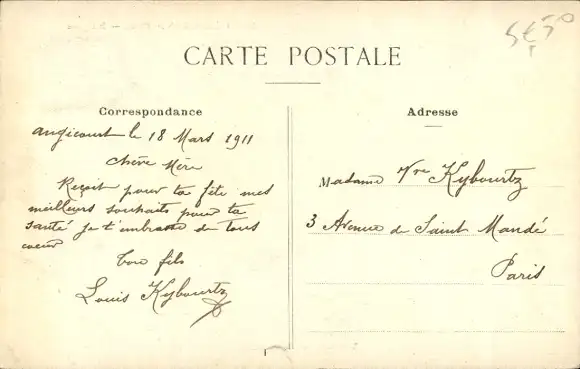 CARTE POSTALE
Correspondance
Angicourt le 18 Mars 1911
Chère Mère
Reçoit pour ta fête mes
meilleurs souhaits pour ta
santé je t'embrasse de tous
coeur
Ton fils
Louis Kybourtz
Adresse
Madame Vve Kybourtz
3 Avenue de Saint Mandé
Paris